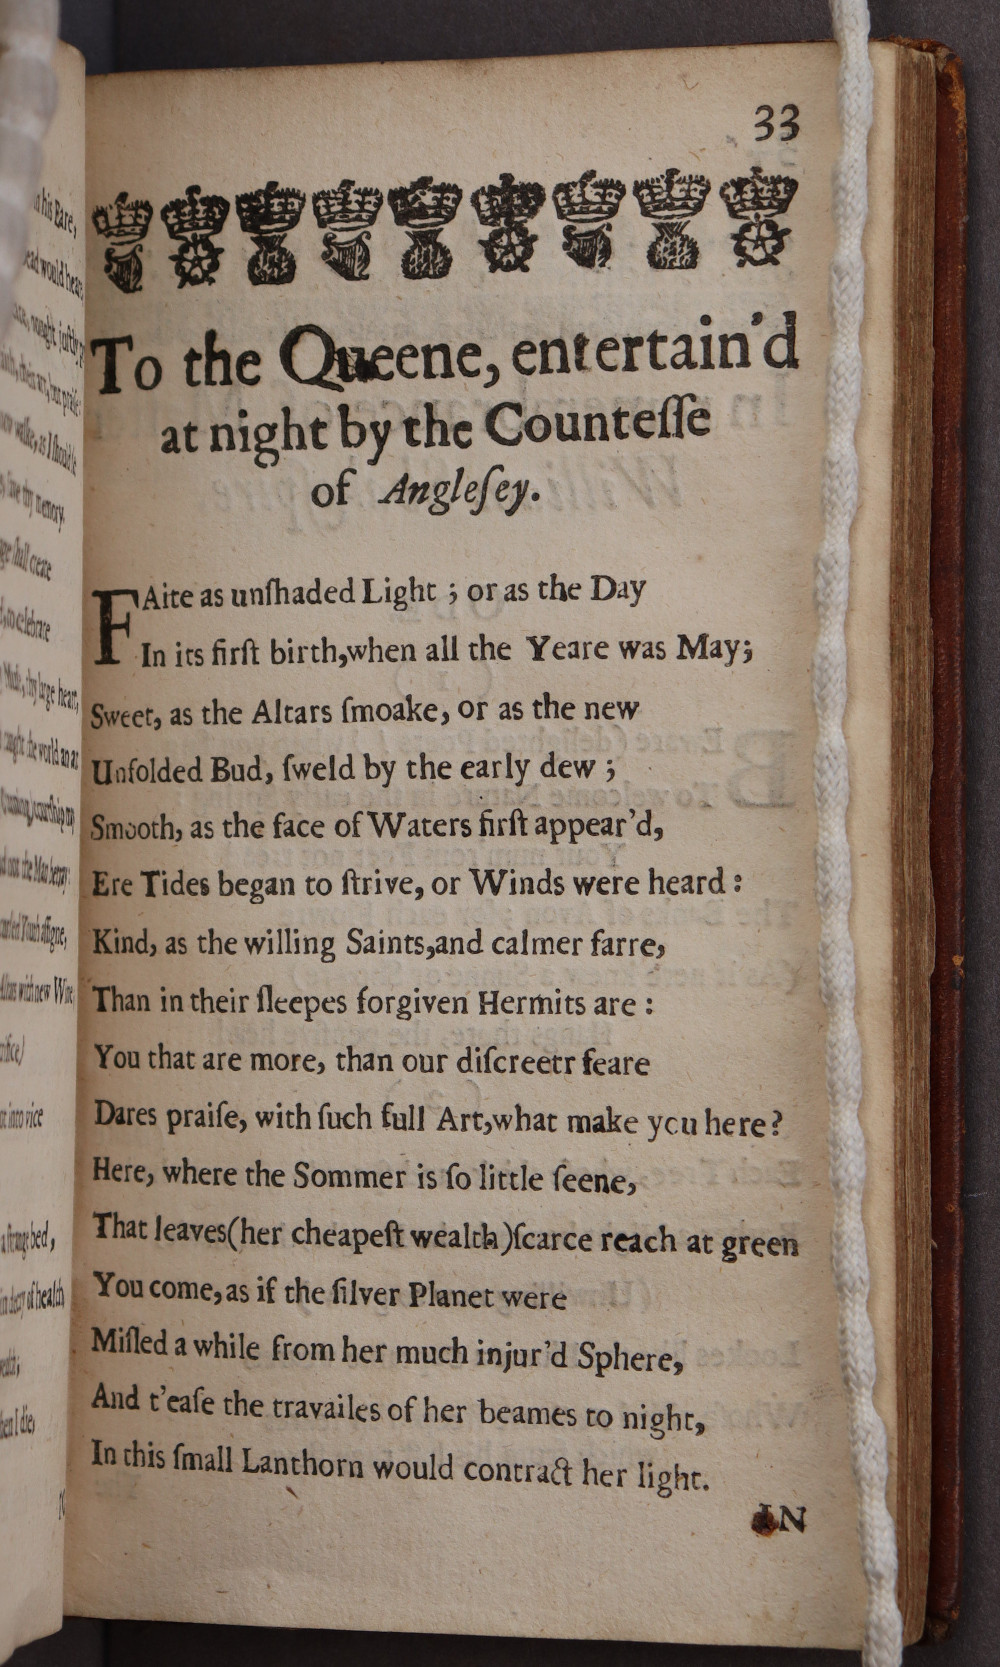 n his Eare,
ead would heare
33
To the Queene, entertain'd
at night by the Counteſſe
of Angleſey.
FAite as unſhaded Light ; or as the Day
In its firſt birth,when all the Yeare was May;
Sweet, as the Altars ſmoake, or as the new
Unfolded Bud, ſweld by the early dew ;
Smooth, as the face of Waters firſt appear'd,
Ere Tides began to ſtrive, or Winds were heard :
Kind, as the willing Saints,and calmer farre,
Than in their ſleepes forgiven Hermits are :
You that are more, than our diſcreetr feare
Dares praiſe, with ſuch full Art,what make you here?
Here, where the Sommer is ſo little ſeene,
That leaves(her cheapeſt wealth)ſcarce reach at green
You come,as if the ſilver Planet were
Miſled a while from her much injur'd Sphere,
And t'eaſe the travailes of her beames to night,
In this ſmall Lanthorn would contract her light.
IN